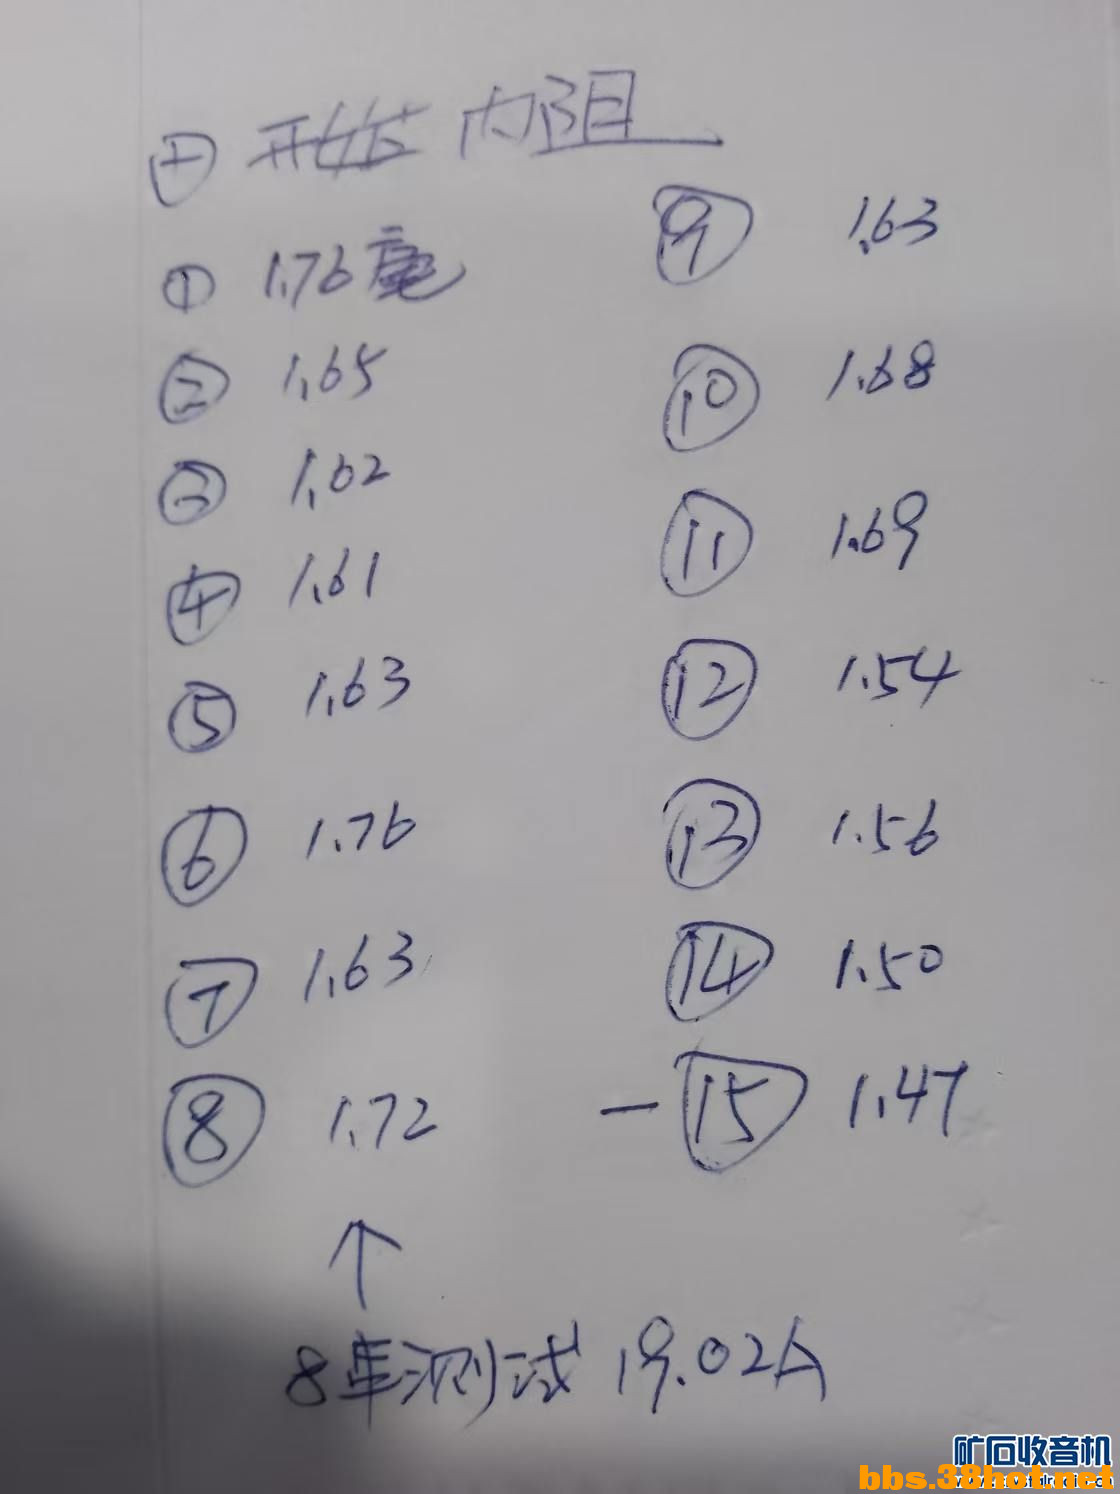 ⊕ 开始 内阻
① 1.76毫
② 1.65
③ 1.62
④ 1.61
⑤ 1.63
⑥ 1.76
⑦ 1.63
⑧ 1.72
⑨ 1.63
⑩ 1.68
⑪ 1.69
⑫ 1.54
⑬ 1.56
⑭ 1.50
— ⑮ 1.47
↑
8串测试 19.02A
矿石收音机
bbs.38hot.net